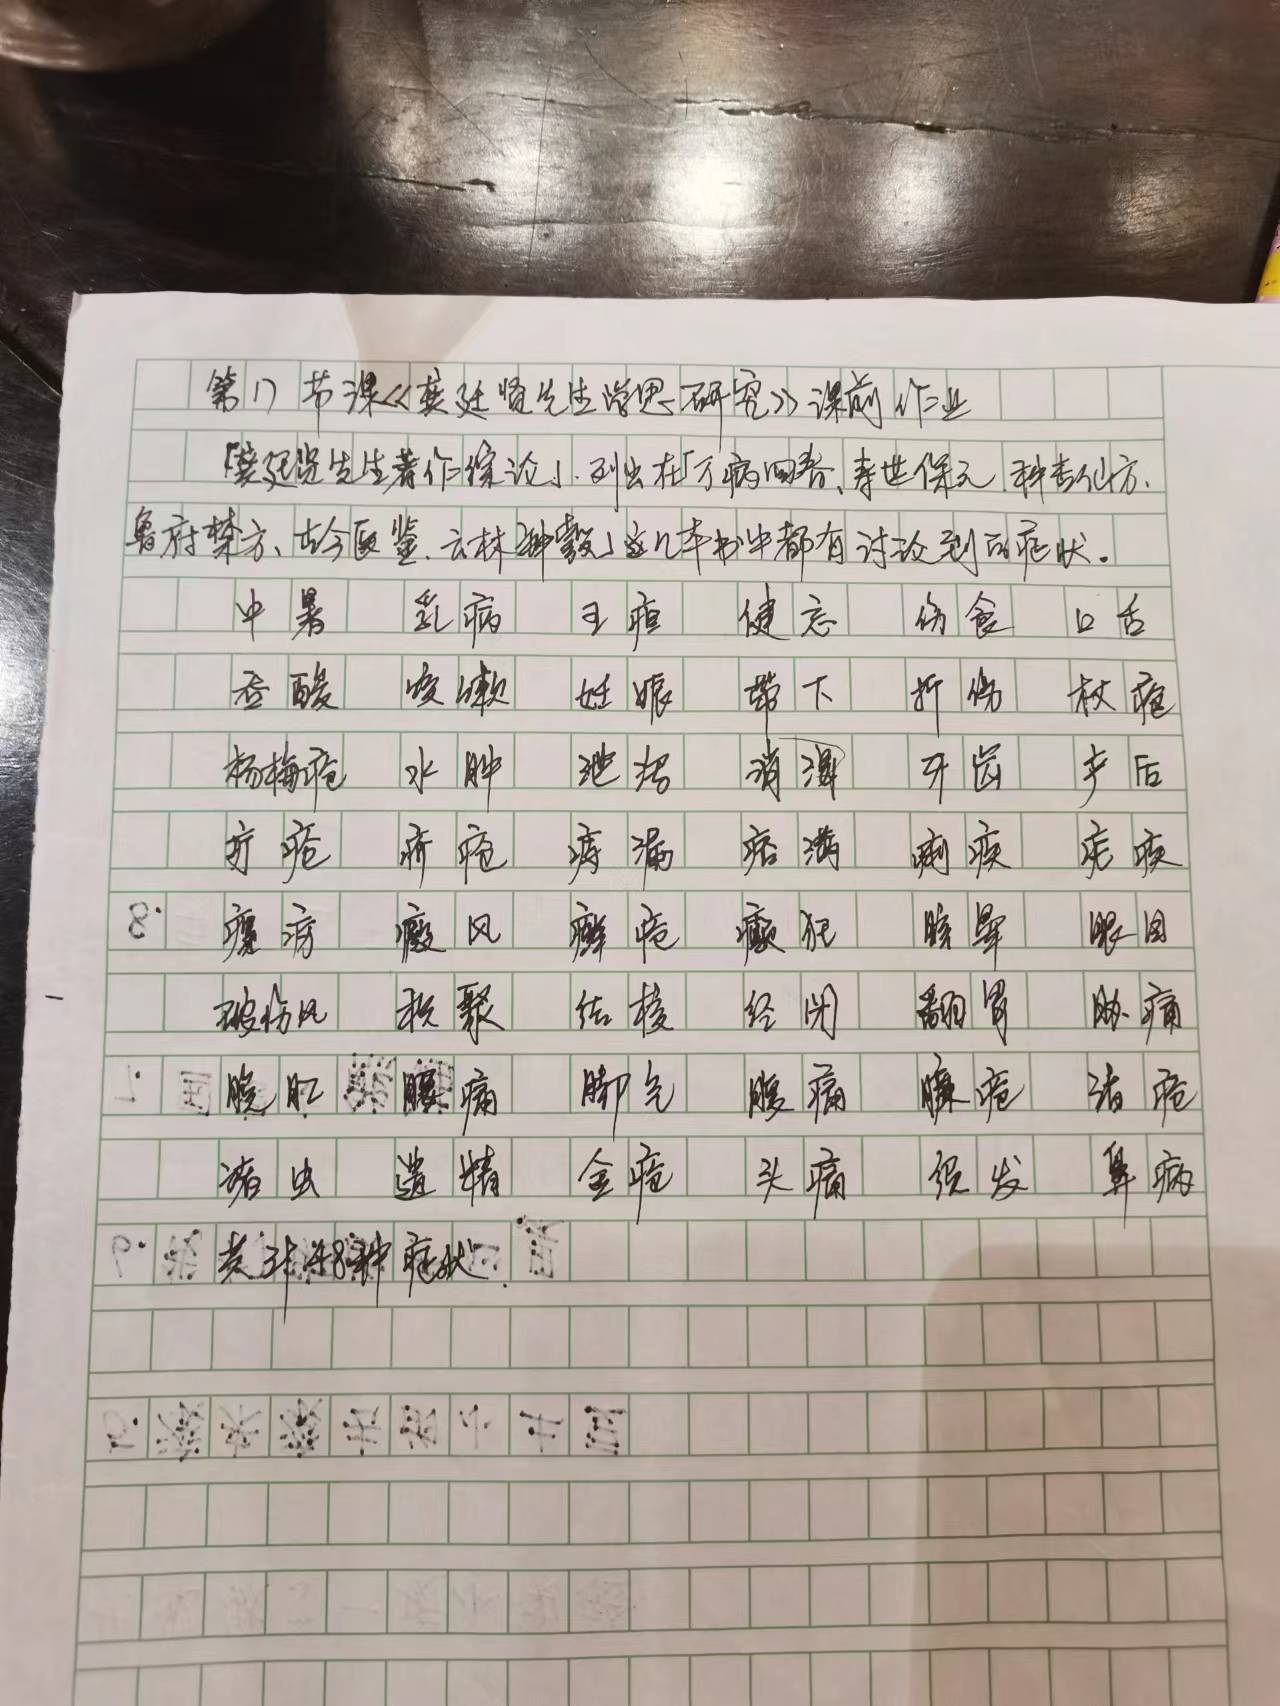 第17节课《龚廷贤先生学思研究》课前作业
「龚廷贤先生著作综论」.列出在「万病回春、寿世保元.种杏仙方.
鲁府禁方、古今医鉴.云林神彀」这几本书中都有讨论到的症状。
中暑 乳病 五疸 健忘 伤食 口舌
吞酸 咳嗽 妊娠 带下 折伤 杖疮
杨梅疮 水肿 泄泻 消渴 牙齿 产后
疔疮 疥疮 痔漏 痞满 痢疾 疟疾
8. 癜风 癣疮 癫狂 眩晕 眼目
破伤风 积聚 结核 经闭 翻胃 胁痛
7. 脱肛 腰痛 脚气 腹痛 臁疮 诸疮
诸虫 遗精 金疮 头痛 须发 鼻病
9. 共计48种症状.
10.